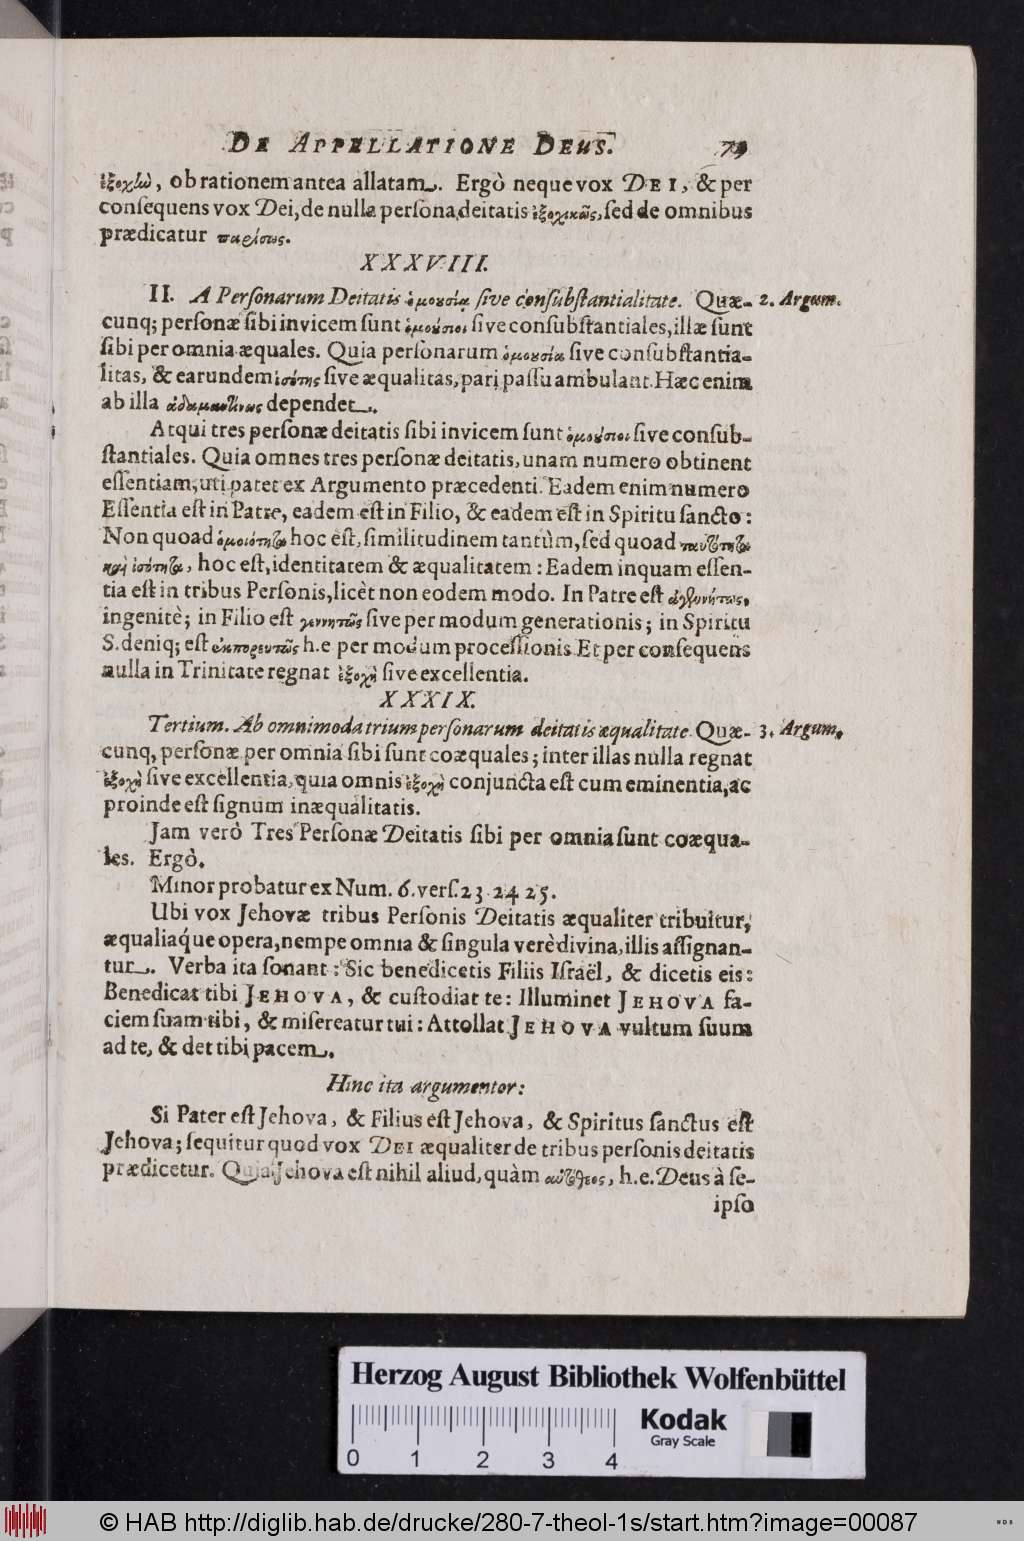 DE APPELLATIONE DEUS. 79
ἐξοχὼ, ob rationem antea allatam. Ergò neque vox DEI, & per
conſequens vox Dei, de nulla perſona deitatis ἐξοχικῶς, ſed de omnibus
prædicatur παρίσως.
XXXVIII.
II. A Perſonarum Deitatis ὁμουσίᾳ ſive conſubſtantialitate. Quæ- 2. Argum.
cunq; perſonæ ſibi invicem ſunt ὁμούσιοι ſive conſubſtantiales, illæ ſunt
ſibi per omnia æquales. Quia perſonarum ὁμουσία ſive conſubſtantia-
litas, & earundem ἰσότης ſive æqualitas, pari paſſu ambulant. Hæc enim
ab illa ἀδαμαντίνως dependet.
Atqui tres perſonæ deitatis ſibi invicem ſunt ὁμούσιοι ſive conſub-
ſtantiales. Quia omnes tres perſonæ deitatis, unam numero obtinent
eſſentiam, uti patet ex Argumento præcedenti. Eadem enim numero
Eſſentia eſt in Patre, eadem eſt in Filio, & eadem eſt in Spiritu ſancto:
Non quoad ὁμοιότητα hoc eſt, ſimilitudinem tantùm, ſed quoad ταυτότητα
καὶ ἰσότητα, hoc eſt, identitatem & æqualitatem: Eadem inquam eſſen-
tia eſt in tribus Perſonis, licèt non eodem modo. In Patre eſt ἀγεννήτως,
ingenitè; in Filio eſt γεννητῶς ſive per modum generationis; in Spiritu
S. deniq; eſt ἐκπορευτῶς h.e per modum proceſſionis. Et per conſequens
nulla in Trinitate regnat ἐξοχὴ ſive excellentia.
XXXIX.
Tertium. Ab omnimoda trium perſonarum deitatis æqualitate. Quæ- 3. Argum.
cunq, perſonæ per omnia ſibi ſunt coæquales; inter illas nulla regnat
ἐξοχὴ ſive excellentia, quia omnis ἐξοχὴ conjuncta eſt cum eminentia, ac
proinde eſt ſignum inæqualitatis.
Jam verò Tres Perſonæ Deitatis ſibi per omnia ſunt coæqua-
les. Ergò.
Minor probatur ex Num. 6. verſ. 23. 24 25.
Ubi vox Jehovæ tribus Perſonis Deitatis æqualiter tribuitur,
æqualiaq́ue opera, nempe omnia & ſingula verè divina, illis aſſignan-
tur. Verba ita ſonant: Sic benedicetis Filiis Iſraël, & dicetis eis:
Benedicat tibi JEHOVA, & cuſtodiat te: Illuminet JEHOVA fa-
ciem ſuam tibi, & miſereatur tui: Attollat JEHOVA vultum ſuum
ad te, & det tibi pacem.
Hinc ita argumentor:
Si Pater eſt Jehova, & Filius eſt Jehova, & Spiritus ſanctus eſt
Jehova; ſequitur quod vox DEI æqualiter de tribus perſonis deitatis
prædicetur. Quia Jehova eſt nihil aliud, quàm αὐτόθεος, h.e. Deus à ſe-
ipſo
Herzog August Bibliothek Wolfenbüttel
Kodak
Gray Scale
0 1 2 3 4
© HAB http://diglib.hab.de/drucke/280-7-theol-1s/start.htm?image=00087